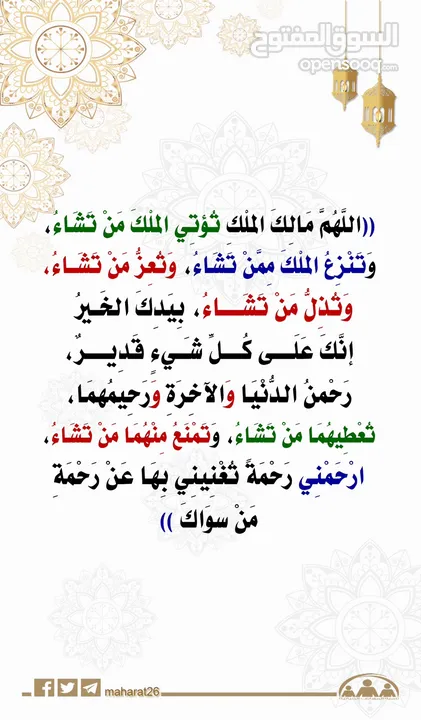 السوق المفتوح
opensooq.com
((اللَّهُمَّ مَالِكَ الملْكِ تُؤتِي الملْكَ مَنْ تَشَاءُ،
وَتَنْزِعُ الملْكَ مِمَّنْ تَشَاءُ، وَتُعِزُّ مَنْ تَشَــاءُ،
وَتُذِلُّ مَنْ تَشَـــاءُ، بِيَدِكَ الخَـيرُ
إنَّكَ عَلَــى كُــلِّ شَــيءٍ قَدِيــرٌ،
رَحْمنُ الدُّنْيَا وَالآخِرَة وَرَحِيمُهمَا،
تُعْطِيهُمَا مَنْ تَشَاءُ، وَتَمْنَعُ مِنْهُمَا مَنْ تَشَاءُ،
ارْحَمْنِي رَحْمَةً تُغْنِينِي بِهَا عَنْ رَحْمَةِ
مَنْ سوَاكَ ))
maharat26